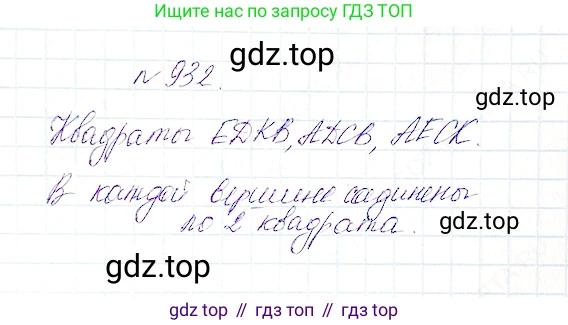 Ищите нас по запросу ГДЗ ТОП
gdz.top
№ 932.
gdz.top
Квадраты EDKB, ADCB, AECK.
В каждой вершине соединены
по 2 квадрата.
gdz.top
gdz.top
gdz.top // гдз топ // гдз.топ